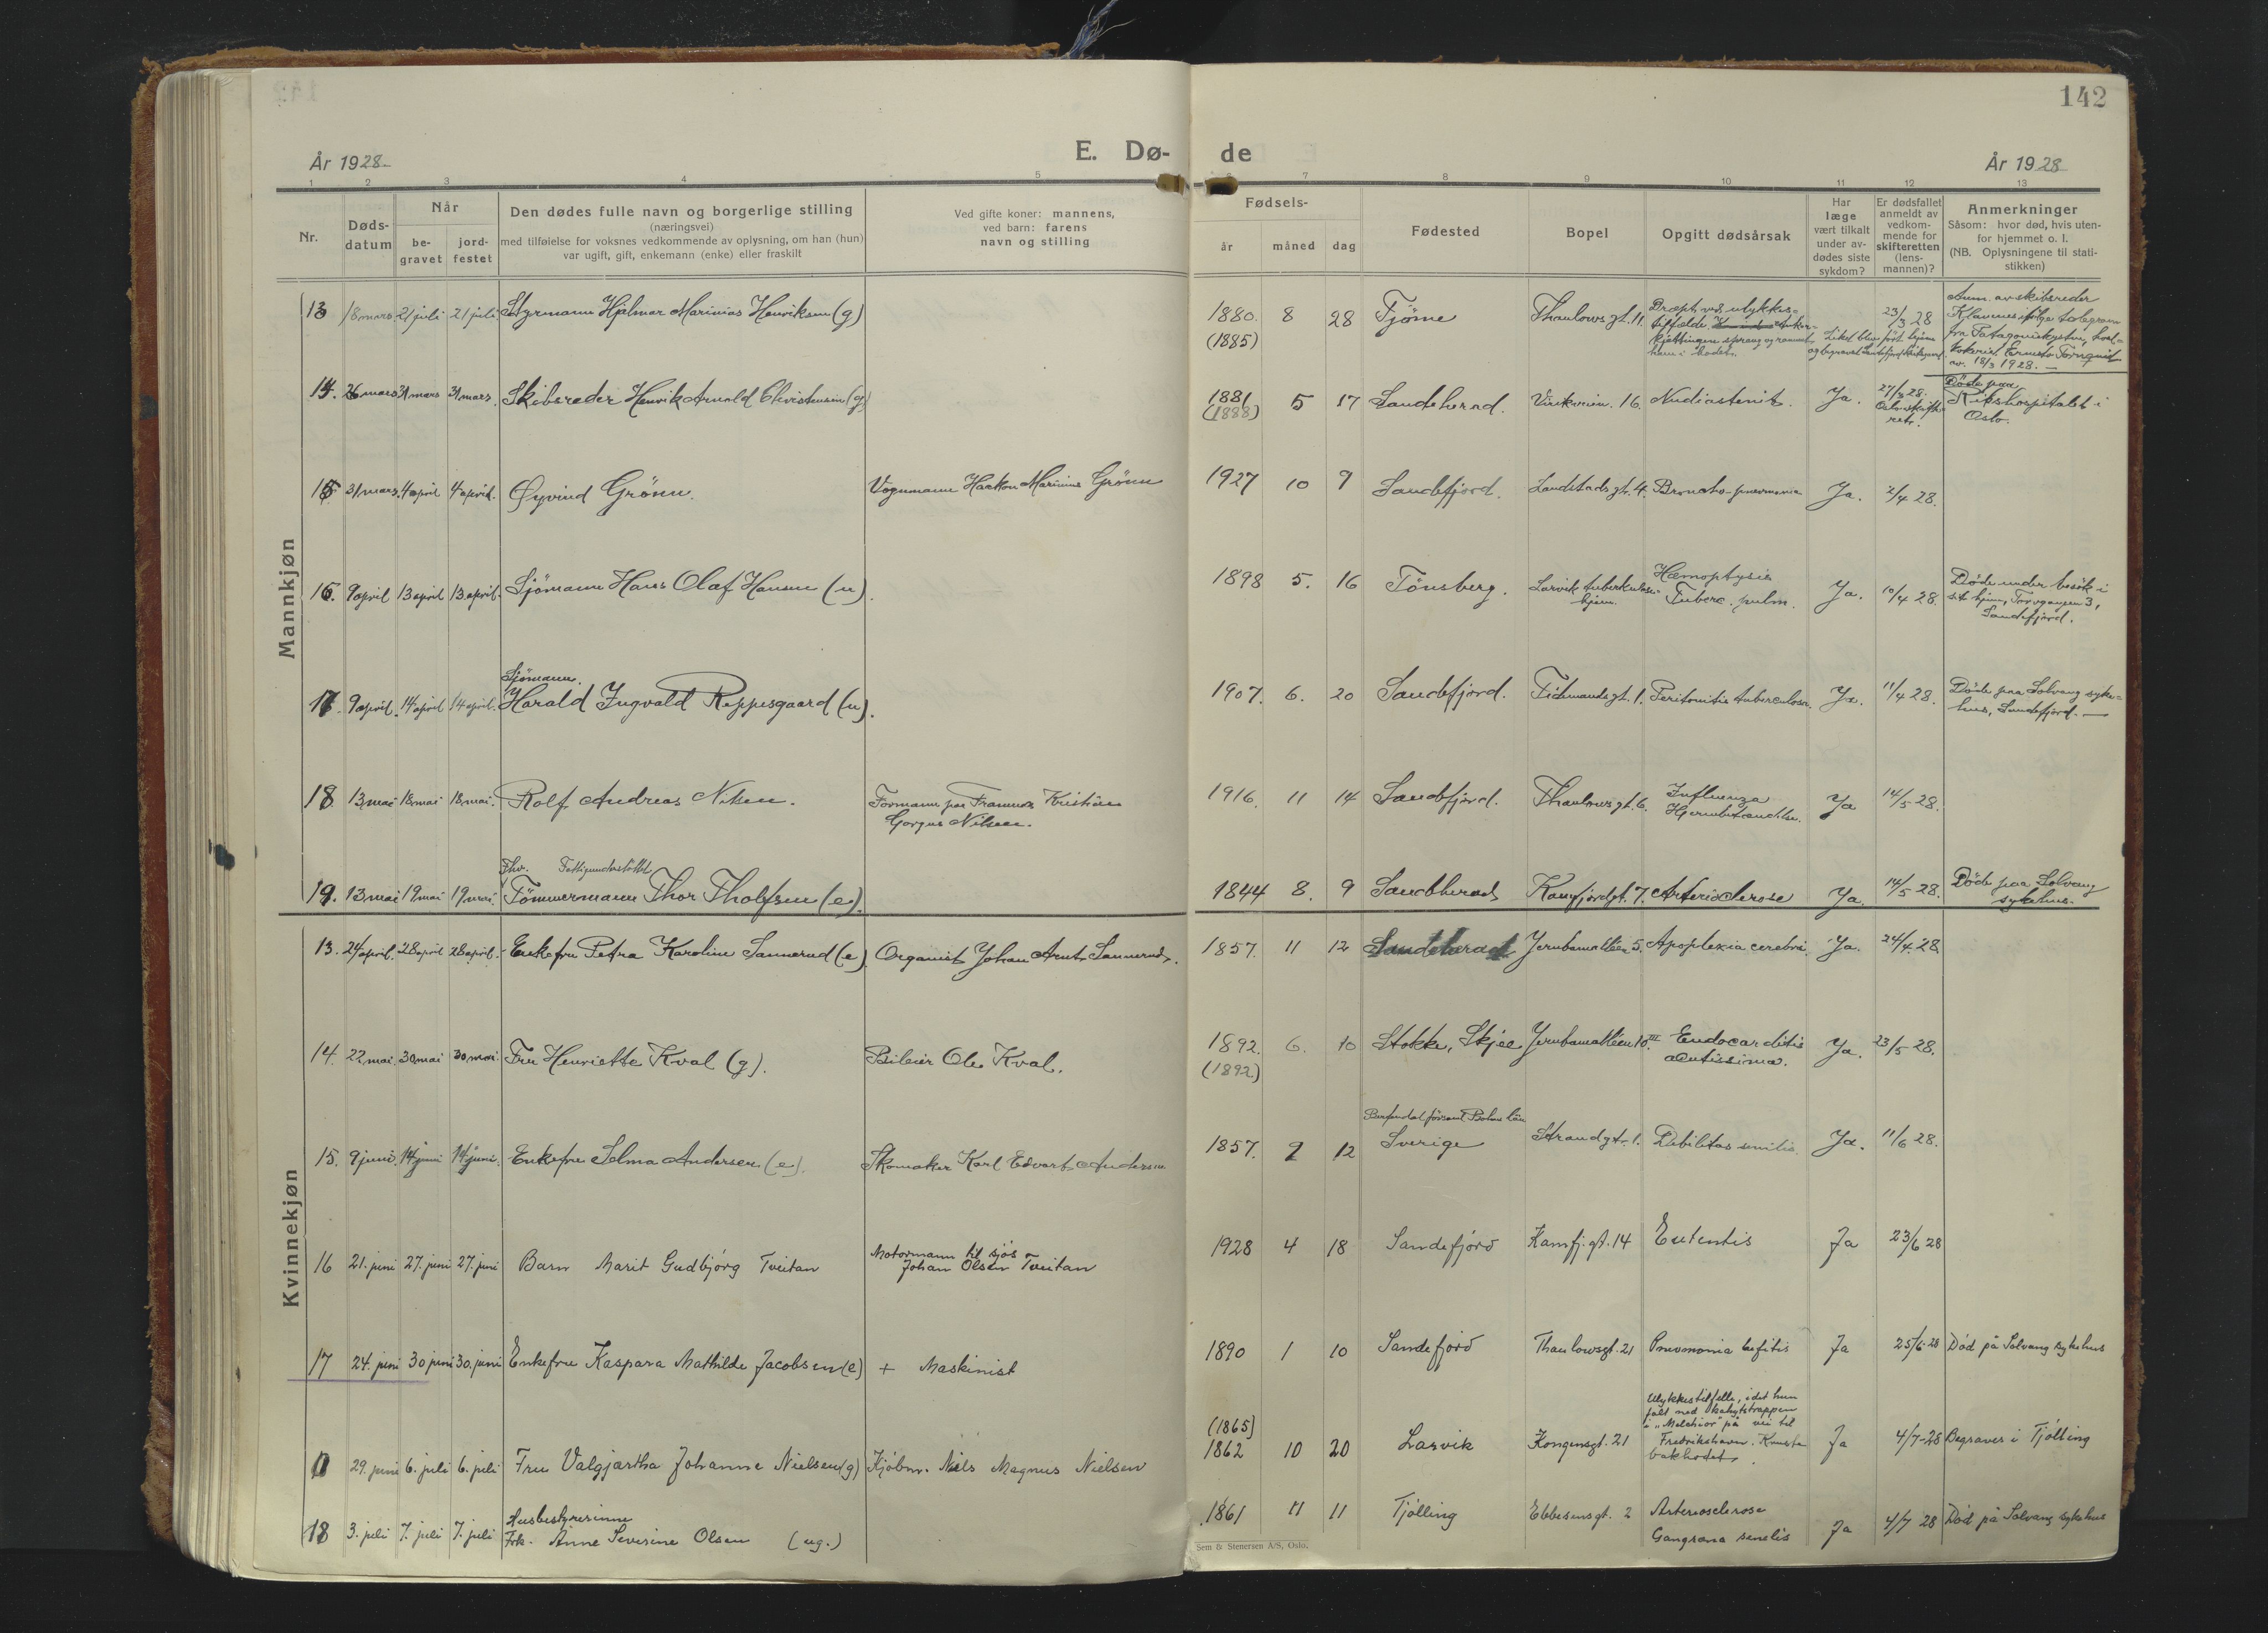 142
E. Dø-
de
År 1928
År 1928
1 2 3 4 5 6 7 8 9 10 11 12 13
Nr.
Døds-
datum
Når
be-
gravet
jord-
festet
Den dødes fulle navn og borgerlige stilling
(næringsvei)
med tilføielse for voksnes vedkommende av oplysning, om han (hun)
var ugift, gift, enkemann (enke) eller fraskilt
Ved gifte koner: mannens,
ved barn: farens
navn og stilling
Fødsels-
år måned dag
Fødested
Bopel
Opgitt dødsårsak
Har
læge
vært tilkalt
under av-
dødes siste
sykdom?
Er dødsfallet
anmeldt av
vedkom-
mende for
skifteretten
(lens-
mannen)?
Anmerkninger
Såsom: hvor død, hvis uten-
for hjemmet o. l.
(NB. Oplysningene til stati-
stikken)
Mannkjøn
13 18 mars 21 juli 21 juli Styrmann Hjalmar Marinius Henriksen (g) 1880 8 28 Tjöme Thaulows gt. 11. Dræpt ved ulykkes- 23/3 28 Anm. av skibsreder
(1885) tilfælde. Anker- Klaveness ifølge telegram
kjettingen sprang og rammet Liket blev ført hjem fra Patagoniakysten,
ham i hodet. og begravet Sandefjord kirkegaard. kokeriet Ernesto Tornquist
av 18/3 1928. —
14. 26 mars 31 mars 31 mars. Skibsreder Henrik Arnold Christensen (g) 1881 5 17 Sandeherred. Virikveien. 16. Mediastenit. Ja. 27/3 28. Døde paa
(1888) Oslo skifte- Rikshospitalet i
rett. Oslo.
15. 31 mars. 4 april 4 april. Øyvind Grönn. Vognmann Haakon Marinius Grönn 1927 10 9 Sandefjord. Landstads gt. 4. Broncho-pneumonia Ja. 2/4 28.
16. 9 april 13 april 13 april. Sjömann Hans Olaf Hansen (u). 1898 5. 16 Tönsberg. Larvik tuberkulose- Hæmoptysis Ja. 10/4 28. Döde under besök i
hjem. Tuberc. pulm. sit hjem, Torvgangen 3,
Sandefjord.
Sjömann.
17. 9 april. 14 april 14 april. Harald Ingvald Reppesgaard (u). 1907. 6. 20 Sandefjord. Tidemands gt. 1. Peritonitis tuberculosa. Ja. 11/4 28. Döde paa Solvang syke-
hus, Sandefjord. —
18. 13 mai 18 mai 18 mai. Rolf Andreas Nilsen. Formann paa Framnæs Kristian 1916. 11 14 Sandefjord. Thaulows gt. 6. Influenza Ja 14/5 28.
Gorgus Nilsen. Hjernebetændelse.
Fhv. Fattigunderstöttet
19. 13 mai 19 mai 19 mai. Tömmermann Thor Tholfsen (e). 1844 8. 9 Sandeherred Kamfjordgt. 7. Arteriosclerose Ja. 14/5 28. Döde paa Solvang
sykehus.
Kvinnekjøn
13. 24 april. 28 april 28 april. Enkefru Petra Karoline Sannerud (e). Organist Johan Arnt Sannerud. 1857. 11 12 Sandeherred Jernbanealléen 5. Apoplexia cerebri. Ja. 24/4. 28.
14. 22 mai. 30 mai 30 mai. Fru Henriette Kval (g). Bileier Ole Kval. 1892. 6. 10 Stokke, Skjee Jernbanealléen 10 III Endocarditis Ja. 23/5 28.
(1892) acutissima.
15. 9 juni. 14 juni 14 juni. Enkefru Selma Andersen (e). Skomaker Karl Edvart Andersen 1857. 2 12 Sverige Strandgt. 1. Debilitas senilis. Ja. 11/6 28.
16 21. juni 27. juni 27. juni Barn Marit Gudbjörg Tveitan Motormann til sjös 1928 4 18 Sandefjord Kamfj. gt. 14 Ja 23/6 28
Johan Olsen Tveitan
17 24. juni 30 juni 30. juni Enkefru Kaspara Mathilde Jacobsen (e) + Maskinist 1890 1 10 Sandefjord Thaulowsgt. 21 Pneumonia Ja 25/6-28 Död på Solvang sykehus
29. juni 6. juli 6. juli Fru Valgjærtha Johanne Nielsen (g) Kjöbm. Niels Magnus Nielsen (1865) Ulykkestilfelle, idet hun
1862 10 20 Larvik Kongensgt. 21 falt ned kahytstrappen Ja 4/7-28 Begraves i Tjölling
i "Melchior" på vei til
Fredrikshavn. Knuste
bakhodet.
Husbestyrerinne
18 3. juli 7. juli 7. juli Frk. Anne Severine Olsen (ug.) 1861 11 11 Tjölling Ebbesensgt. 2 Arteriosclerose Ja 4/7 28 Död på Solvang sykehus
Gangræna senilis
Sem & Stenersen A/S, Oslo.